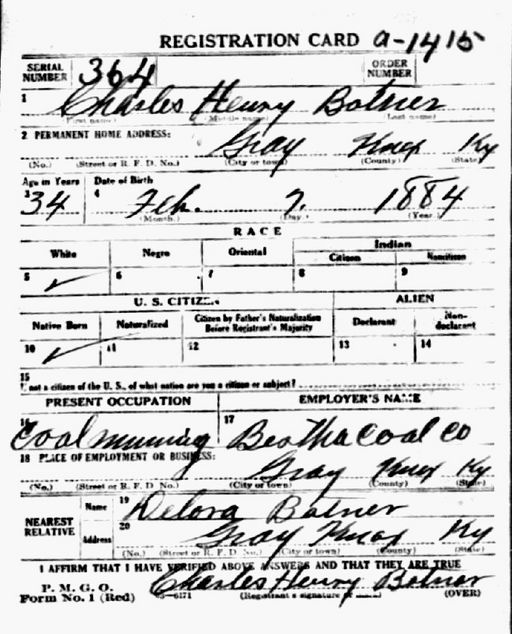 REGISTRATION CARD a-1415
SERIAL NUMBER 364 ORDER NUMBER
1 Charles Henry Botner
(First name) (Middle name) (Last name)
2 PERMANENT HOME ADDRESS:
Gray Knox Ky
(No.) (Street or R. F. D. No.) (City or town) (County) (State)
Age in Years Date of Birth
3 34 4 Feb. 7. 1884
(Month.) (Day.) (Year.)
RACE
White Negro Oriental Indian
Citizen Noncitizen
5 ✓ 6 7 8 9
U. S. CITIZEN ALIEN
Native Born Naturalized Citizen by Father's Naturalization Before Registrant's Majority Declarant Non-declarant
10 ✓ 11 12 13 14
15
If not a citizen of the U. S., of what nation are you a citizen or subject?
PRESENT OCCUPATION EMPLOYER'S NAME
16 Coal mining 17 Beatha Coal Co
18 PLACE OF EMPLOYMENT OR BUSINESS:
Gray Knox Ky
(No.) (Street or R. F. D. No.) (City or town) (County) (State)
NEAREST RELATIVE Name 19 Delora Botner
Address 20 Gray Knox Ky
(No.) (Street or R. F. D. No.) (City or town) (County) (State)
I AFFIRM THAT I HAVE VERIFIED ABOVE ANSWERS AND THAT THEY ARE TRUE
P. M. G. O.
Form No. 1 (Red) 03-6171 Charles Henry Botner
(Registrant's signature or mark) (OVER)